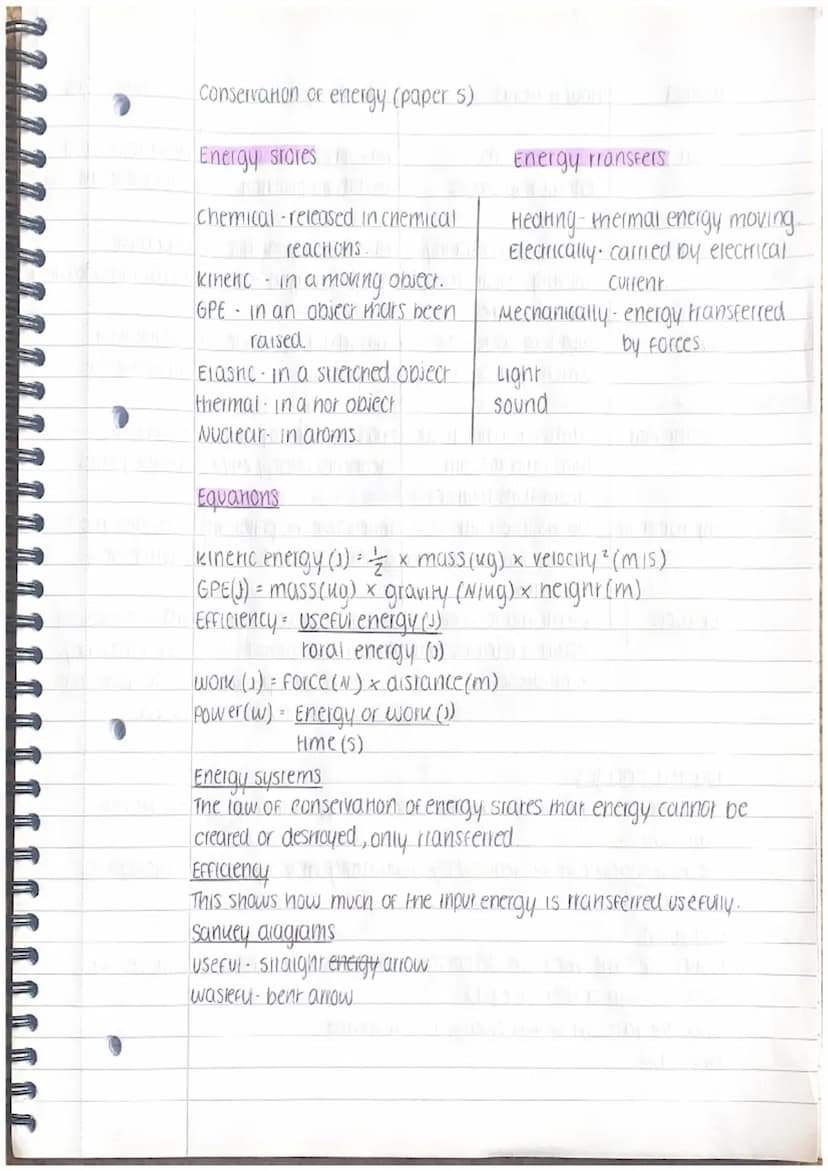 Conservation of energy (paper 5)
Energy stores
Energy transfers
Chemical - released in chemical
reactions.
Kinetic - in a moving object.
GPE - in an object thats been
raised.
Elastic - in a stretched object
thermal - in a hot object
Nuclear - in atoms.
Heating - thermal energy moving.
Electrically - carried by electrical
current
Mechanically - energy transferred
by forces.
Light
sound
Equations
kinetic energy (J) = 1/2 x mass (kg) x velocity² (m/s)
GPE(J) = mass(kg) x gravity (N/kg) x height (m)
Efficiency = useful energy (J)
total energy (J)
work (J) = force (N) x distance (m)
Power (W) = Energy or work (J)
time (s)
Energy systems
The law of conservation of energy states that energy cannot be
created or destroyed, only transferred.
Efficiency
This shows how much of the input energy is transferred usefully.
Sankey diagrams
useful - straight energy arrow
wasteful - bent arrow